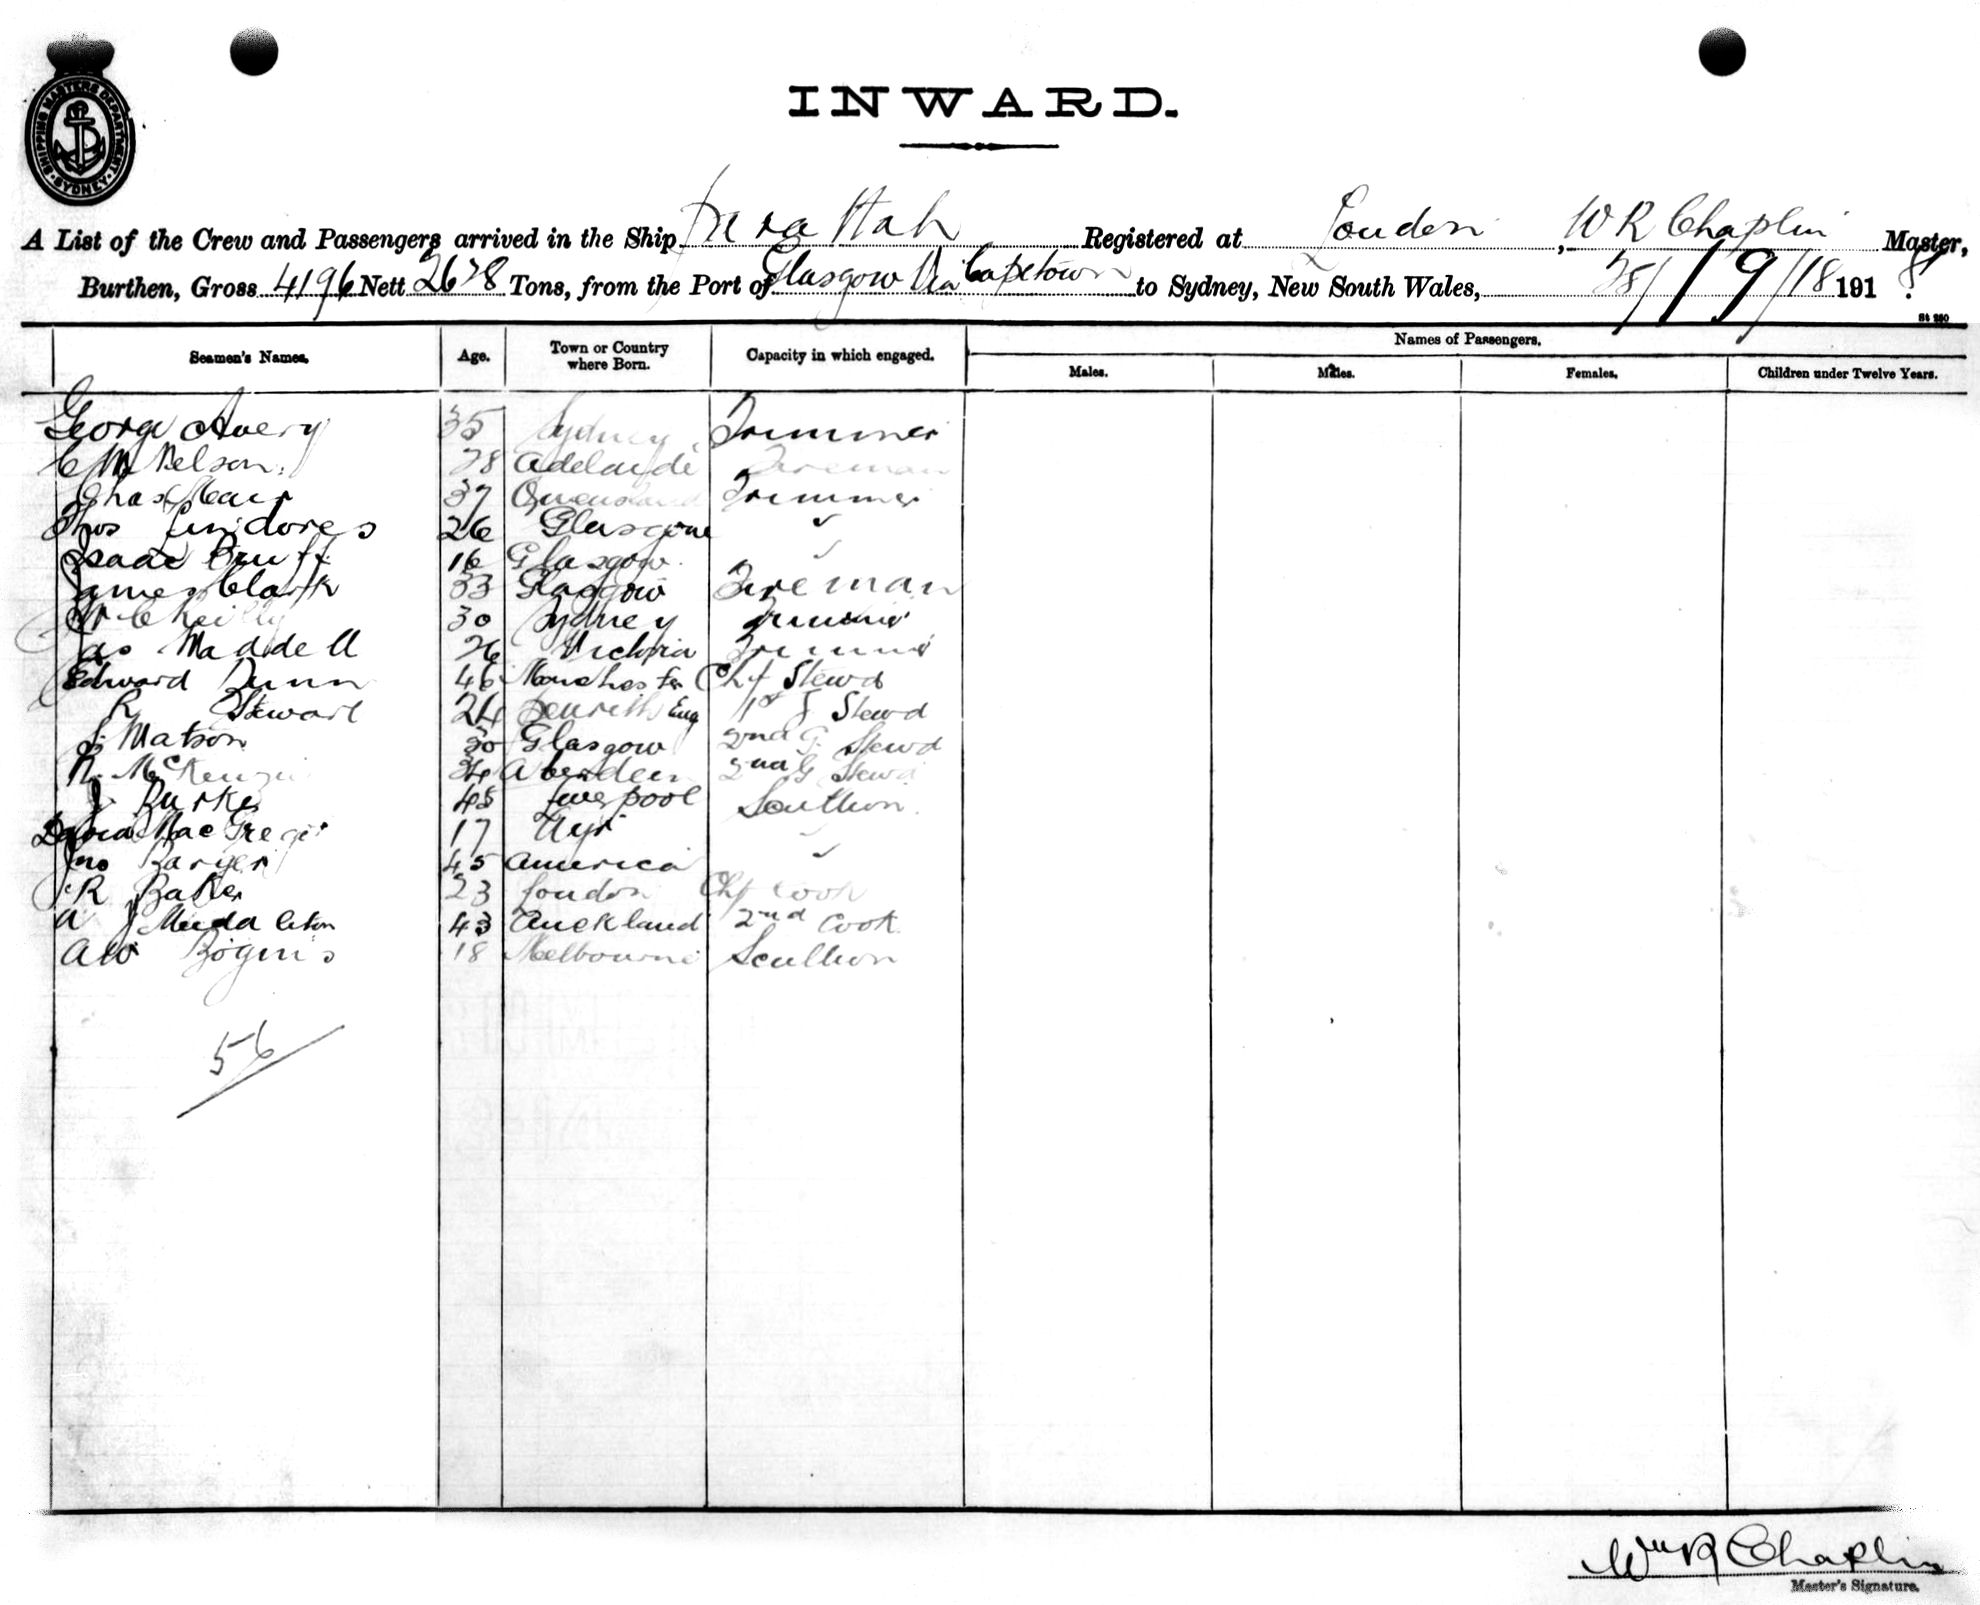 SHIPPING MASTERS DEPARTMENT SYDNEY
INWARD.
A List of the Crew and Passengers arrived in the Ship Registered at London, W R Chaplin Master,
Burthen, Gross 4196 Nett Tons, from the Port of Glasgow Via Capetown to Sydney, New South Wales, 28/9/18 1918
St 280
Seamen's Names. Age. Town or Country where Born. Capacity in which engaged. Names of Passengers.
Males. Males. Females. Children under Twelve Years.
George Avery 35 Sydney Trimmer
C Nelson 28 Adelaide Fireman
Chas Mair 37 Queensland Trimmer
Thos Lindores 26 Glasgow ✓
Isaac Cruff 16 Glasgow ✓
James Clark 33 Glasgow Fireman
Reilly 30 Sydney Trimmer
Jas Maddell 26 Victoria Trimmer
Edward Dunn 46 Manchester Chf Stewd
R Stewart 24 Penrith Eng 1st S Stewd
J Matson 30 Glasgow 2nd G. Stewd
R McKenzie 34 Aberdeen 2nd G Stewd
J Burke 45 Liverpool Scullion
David MacGregor 17 Ayr ✓
Jno Barger 45 America ✓
R Baker 23 London Chf Cook
A J Middleton 43 Auckland 2nd Cook
AW 18 Melbourne Scullion
56
Wm R Chaplin
Master's Signature.